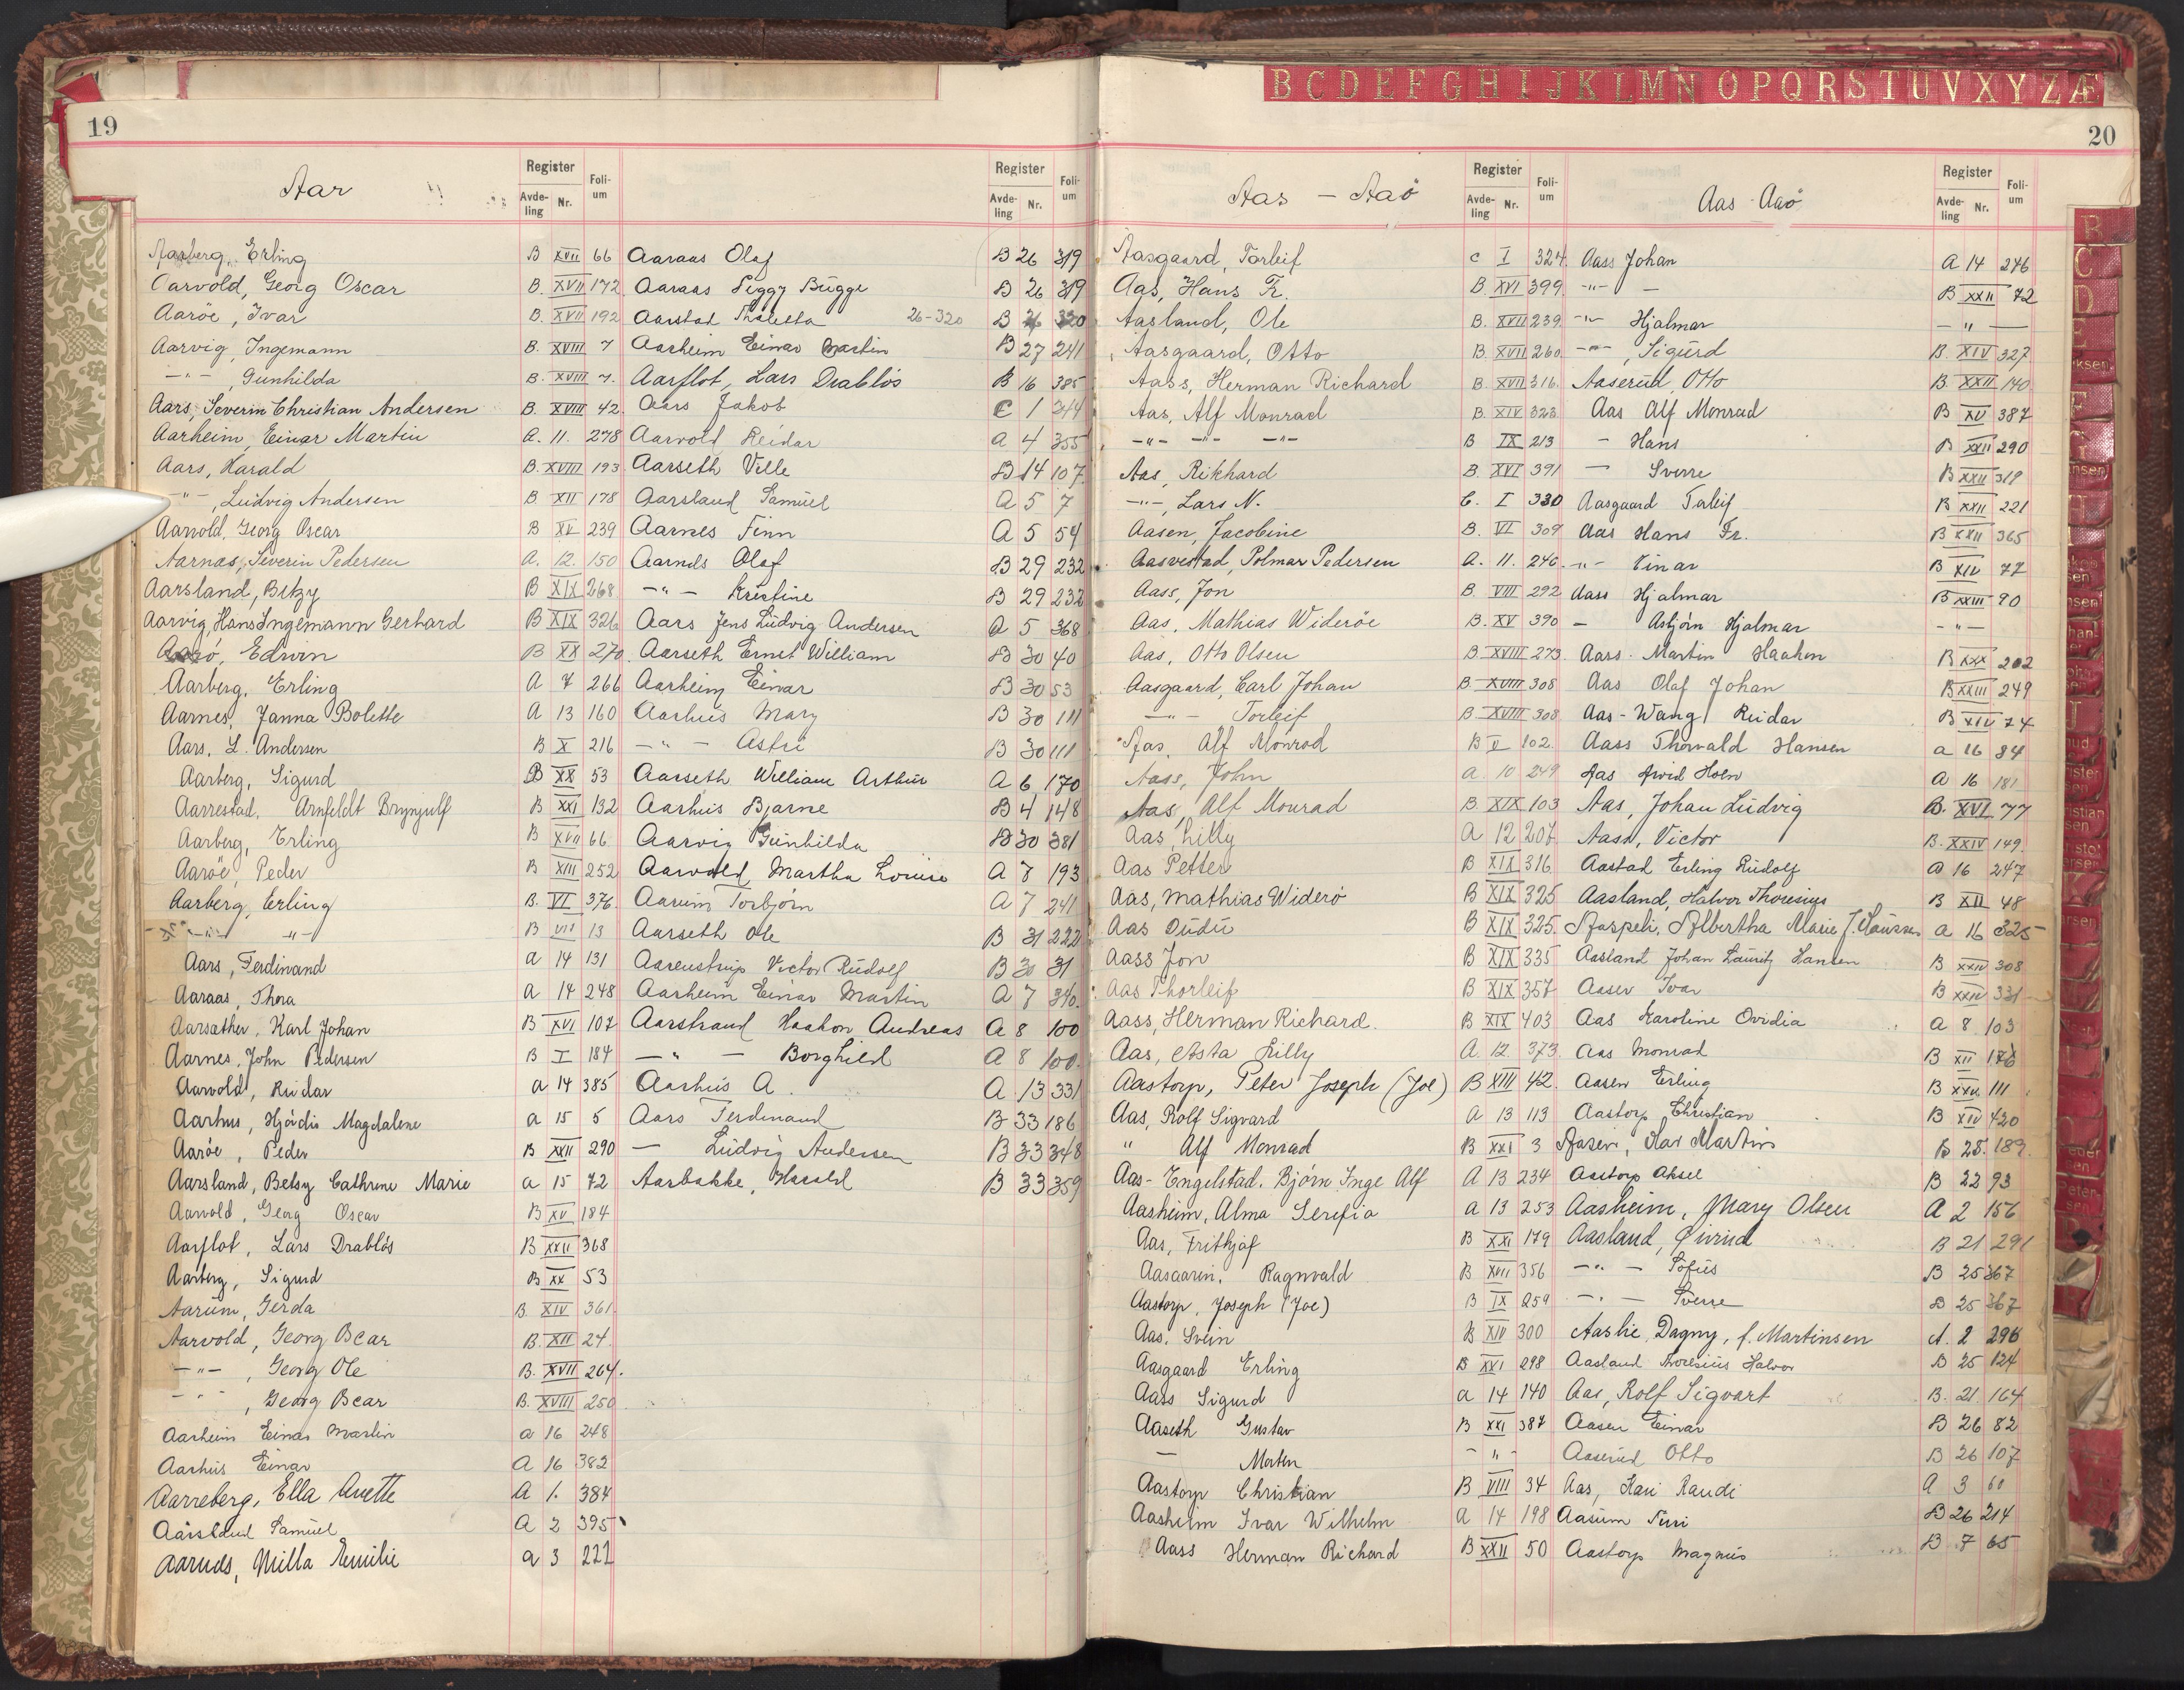 19
Aar
Register
Avdeling Nr. Folium
Aarberg, Erling B XVII 66
Aarvold, Georg Oscar B. XVII 172
Aaröe, Ivar B. XVII 192
Aarvig, Ingemann B. XVIII 7
-"-, Gunhilda B. XVIII 7.
Aars, Severin Christian Andersen B. XVIII 42.
Aarheim, Einar Martin A. 11. 278
Aars, Harald B. XVIII 193
-"-, Ludvig Andersen B XII 178
Aarvold, Georg Oscar B XV 239
Aarnas, Severin Pedersen A. 12. 150
Aarsland, Betzy B XIX 268
Aarvig, Hans Ingemann Gerhard B XIX 326
Aarö, Edwin B XX 270.
Aarberg, Erling A 7 266
Aarnes, Janna Bolette A 13 160
Aars, L. Andersen B X 216
Aarberg, Sigurd B XX 53
Aarrestad, Arnfeldt Brynjulf B XXI 132
Aarberg, Erling B XVII 66
Aaröe, Peder B XIII 252
Aarberg, Erling B. VI 376.
-"- -"- B VII 13
Aars, Ferdinand a 14 131
Aaraas, Thora a 14 248
Aarsather, Karl Johan B XVI 107
Aarnes, John Pedersen B I 184
Aarvold, Reidar a 14 385
Aarhus, Hjördis Magdalene a 15 5
Aaröe, Peder B XXII 290
Aarsland, Betsy Cathrine Marie a 15 72
Aarvold, Georg Oscar B XV 184
Aarflot, Lars Drabløs B XXII 368
Aarberg, Sigurd B XX 53
Aarum, Gerda B. XIV 361.
Aarvold, Georg Oscar B. XII 24.
-"-, Georg Ole B. XVII 264.
-"-, Georg Oscar B. XVIII 250
Aarheim Einar Martin a 16 248
Aarhus Einar A 16 382
Aarreberg, Ella Anette A 1. 384
Aarsland Samuel A 2 395
Aarnes, Milla Emilie a 3 222
Register
Avdeling Nr. Folium
Aaraas Olaf B 26 319
Aaraas Peggy Bugge B 26 319
Aarstad Thaletta 26-320 B 26 320
Aarheim Einar Martin B 27 241
Aarflot, Lars Drabløs B 16 385
Aars Jakob C 1 344
Aarvold Reidar a 4 355
Aarseth Ville B 14 107
Aarsland Samuel A 5 7
Aarnes Finn A 5 54
Aarnes Olaf B 29 232
-"- Kristine B 29 232
Aars Jens Ludvig Andersen A 5 368
Aarseth Ernst William B 30 40
Aarheim Einar B 30 53
Aarhus Mary B 30 111
-"- Astri B 30 111
Aarseth William Arthur A 6 170
Aarhus Bjarne B 4 148
Aarvig Gunhilda B 30 381
Aarvold Martha Louise A 7 193
Aarum Torbjørn A 7 241
Aarseth Ole B 31 222
Aarenstrup Victor Rudolf B 30 31
Aarheim Einar Martin A 7 340.
Aarstrand Haakon Andreas A 8 100
-"- Borghild A 8 100.
Aarhus A. A 13 331
Aars Ferdinand B 33 186
- Ludvig Andersen B 33 348
Aarbakke, Harald B 33 359
20
B C D E F G H I J K L M N O P Q R S T U V X Y Z Æ
Aas - Aaö
Register
Avdeling Nr. Folium
Aasgaard, Torleif C I 324
Aas, Hans Fr. B. XVI 399
Aasland, Ole B. XVII 239
Aasgaard, Otto B. XVII 260
Aass, Herman Richard B. XVII 316.
Aas, Alf Monrad B. XIV 323
-"- -"- -"- B IX 213
Aas, Rikhard B. XVI 391
-"-, Lars N. C. I 330
Aasen, Jacobine B. VI 309
Aasvestad, Polmar Pedersen A. 11. 240.
Aass, Jon B. VIII 292
Aas, Mathias Wideröe B. XV 390
Aas, Otto Olsen B XVIII 273
Aasgaard, Carl Johan B. XVIII 308
-"- Torleif B. XVIII 308
Aas, Alf Monrad B V 102.
Aass, John a 10 249
Aas, Alf Monrad B XIX 103
Aas, Lilly A 12 207
Aas Petter B XIX 316
Aas, Mathias Widerö B XIX 325
Aas Dudu B XIX 325.
Aass Jon B XIX 335
Aas Thorleif B XIX 357
Aass, Herman Richard. B XIX 403
Aas, Asta Lilly A. 12. 373
Aastorp, Peter Joseph (Joe) B XIII 42.
Aas, Rolf Sigvard a 13 113
" Alf Monrad B XXI 3
Aas-Engelstad. Bjørn Inge Alf A 13 234
Aasheim, Alma Serefia a 13 253
Aas, Frithjof B XXI 179
Aasgaaren, Ragnvald B XVII 356
Aastorp, Joseph (Joe) B IX 259
Aas, Svein B XIV 300
Aasgaard Erling B XXI 298
Aass Sigurd a 14 140
Aaseth Gustav B XXI 387
- Morten - " -
Aastorp Christian B VIII 34
Aasheim Ivar Wilhelm a 14 198
Aass Herman Richard B XXII 50
Aas - Aaö
Register
Avdeling Nr. Folium
Aass Johan A 14 246
-"- - B XXII 72
-"- Hjalmar - " -
-"-, Sigurd B. XIV 327
Aaserud, Otto B. XXII 140
Aas Alf Monrad B XV 387
- Hans B XXII 290
- Sverre B XXII 319
Aasgaard Torleif B XXII 221
Aas Hans Fr. B XXII 365
-"- Einar B XIV 77
Aass Hjalmar B XXIII 90
- Asbjørn Hjalmar - " -
Aars Martin Haakon B XXX 202
Aas Olaf Johan B XXIII 249
Aas-Wang Reidar B XIV 74
Aass Thorvald Hansen a 16 84
Aas Arvid Holm A 16 181
Aas, Johan Ludvig B. XVI 77
Aass, Victor B. XXIV 149
Aastad Erling Rudolf a 16 247
Aasland, Halvor Thoresius B XII 48
Aaspeli, Albertha Marie f. Haussen a 16 325
Aasland Johan Lauritz Hansen B XXIV 308
Aasen Ivar B XXIV 331
Aas Karoline Ovidia A 8 103
Aas Monrad B XII 176
Aasen Erling B XXV 111
Aastorp Christian B XIV 420
Aasen, Kar Martin B 25. 189.
Aastorp Aksel B 22 93
Aasheim, Mary Olsen A 2 156
Aasland, Øivind B 21 291
-"- Sofus B 25 367
-"- Sverre B 25 367
Aaslie, Dagny, f. Martinsen A. 2 296
Aasland Thoresius Halvor B 25 124
Aas, Rolf Sigvart B. 21. 164
Aasen Einar B 26 82
Aaserud Otto B 26 107
Aas, Kari Randi A 3 60
Aasum Turi B 26 214
Aastorp Magnus B 7 65